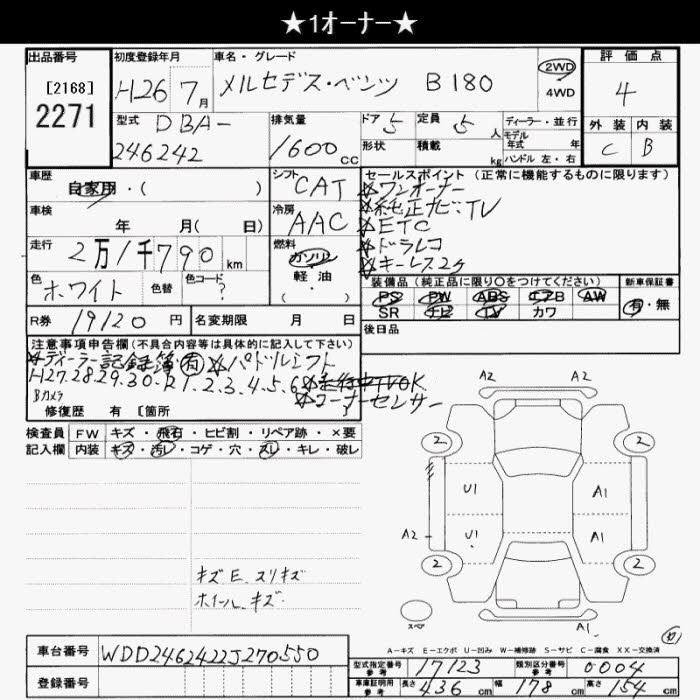 ★1オーナー★
出品番号
[2168]
2271
初度登録年月
H26 7月
車名・グレード
メルセデス・ベンツ B180
2WD
4WD
評価点
4
外装 内装
C B
型式
DBA-
246242
排気量
1600cc
ドア 5
定員 5人
形状
積載 kg
ディーラー・並行
モデル年式 年
ハンドル 左・右
車歴
自家用・( )
シフト
CAT
セールスポイント(正常に機能するものに限ります)
☆ワンオーナー
☆純正ナビ・TV
☆ETC
☆ドラレコ
☆キーレス2ケ
車検
年 月( 日)
冷房
AAC
走行
2万1千790km
燃料
ガソリン
軽油
( )
色
ホワイト
色替
色コード
?
装備品(純正品に限り○をつけてください)
PS PW ABS エアB AW
SR ナビ TV カワ
新車保証書
有・無
後日品
R券 19120円
名変期限 月 日
注意事項申告欄(不具合内容等は具体的に記入して下さい)
☆ディーラー記録簿有 ☆パドルシフト
H27.28.29.30.R1.2.3.4.5.6 ☆走行中TVOK
Bカメラ ☆コーナーセンサー
修復歴 有 [箇所
検査員記入欄
FW キズ・飛石・ヒビ割・リペア跡・×要
内装 キズ・汚レ・コゲ・穴・スレ・キレ・破レ
キズE スリキズ
ホイールキズ
A2 A2
2 2
U1 A1
A2 U1 A1
2 2
スペア
A1
A-キズ E-エクボ U-凹み W-補修跡 S-サビ C-腐食 XX-交換済
車台番号 WDD2462422J270550
登録番号
型式指定番号参考 17123
類別区分番号参考 0004
車庫証明用参考 長さ 436cm 幅 178cm 高さ 154cm